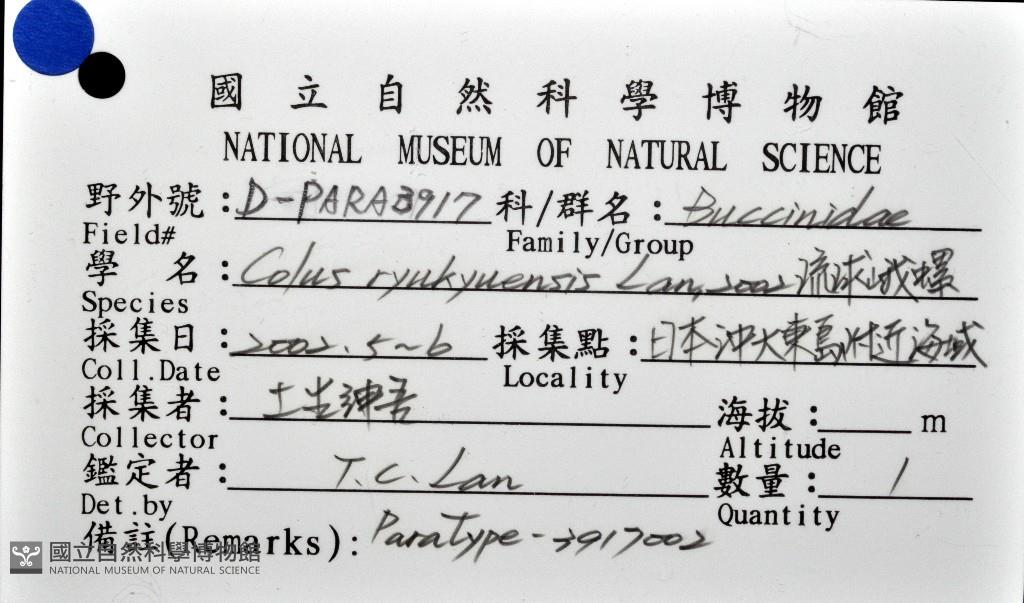 國立自然科學博物館
NATIONAL MUSEUM OF NATURAL SCIENCE
野外號:D-PARA3917 科/群名:Buccinidae
Field# Family/Group
學 名:Colus ryukyuensis Lan, 2002 琉球峨螺
Species
採集日:2002.5~6 採集點:日本沖大東島附近海域
Coll.Date Locality
採集者:土生紳吾 海拔: m
Collector Altitude
鑑定者:T.C.Lan 數量:1
Det.by Quantity
備註(Remarks):ParaType-3917002
國立自然科學博物館
NATIONAL MUSEUM OF NATURAL SCIENCE